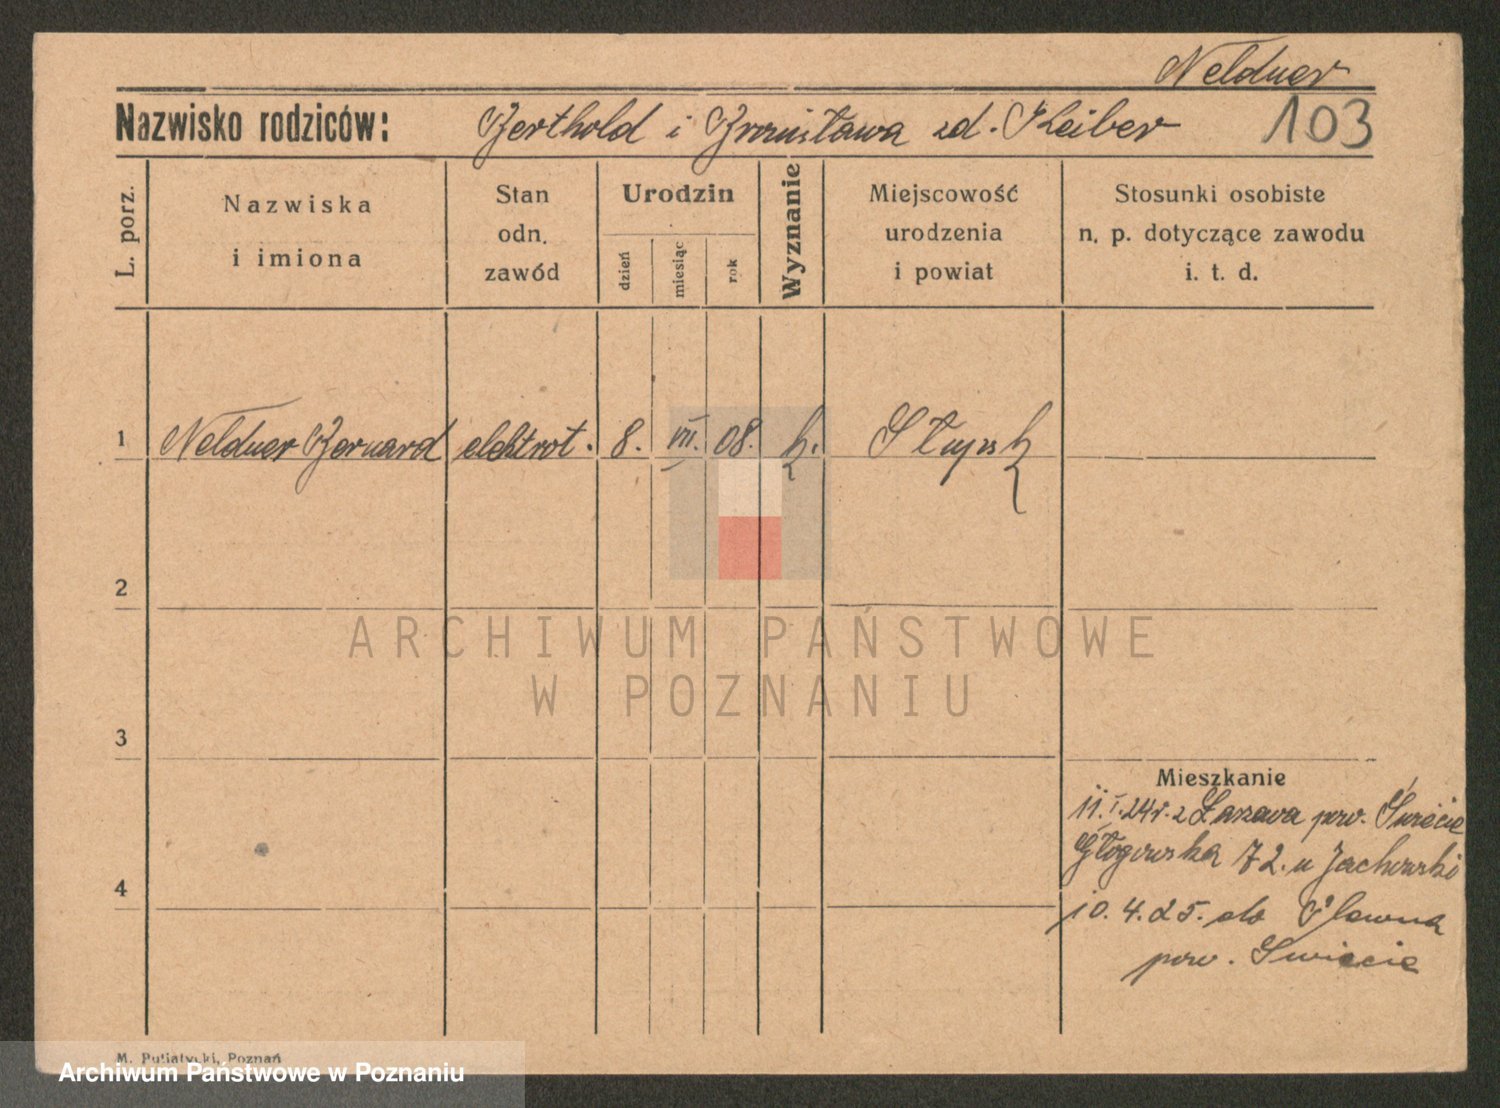 Neldner
Nazwisko rodziców: Berthold i Bronisława zd. Kleiber 103
L. porz.
Nazwiska i imiona
Stan odn. zawód
Urodzin
dzień
miesiąc
rok
Wyznanie
Miejscowość urodzenia i powiat
Stosunki osobiste n. p. dotyczące zawodu i. t. d.
1 Neldner Bernard elektrot. 8. VII. 08. k. Słupsk
2
ARCHIWUM PAŃSTWOWE
W POZNANIU
3
Mieszkanie
11. I. 24r. z pow. Świecie
Głogowska 72. u Jachowski
4
10. 4. 25. do pow. Świecie
M. Putiatycki, Poznań
Archiwum Państwowe w Poznaniu